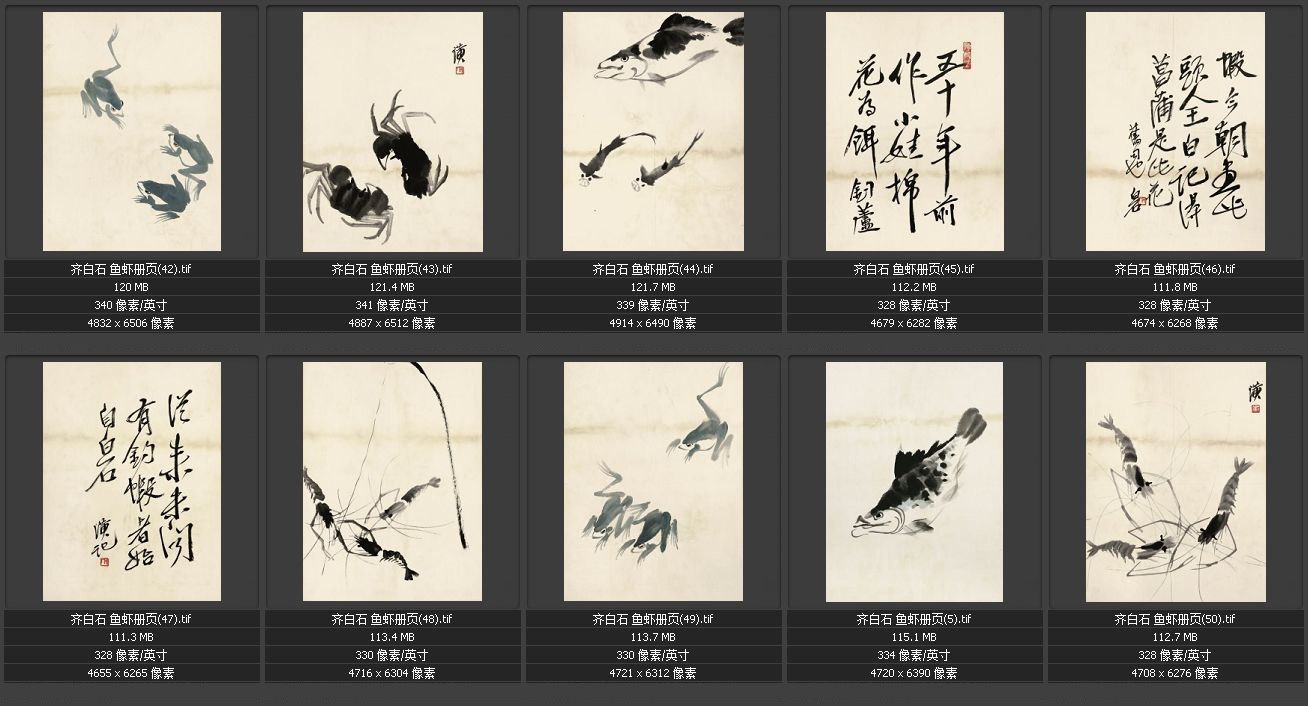 璜
五十年前
作小娃棉
花為餌釣蘆
蝦今朝畫此
頭人王白記得
菖蒲是此花
齐白石 鱼虾册页(42).tif
120 MB
340 像素/英寸
4832 x 6506 像素
齐白石 鱼虾册页(43).tif
121.4 MB
341 像素/英寸
4887 x 6512 像素
齐白石 鱼虾册页(44).tif
121.7 MB
339 像素/英寸
4914 x 6490 像素
齐白石 鱼虾册页(45).tif
112.2 MB
328 像素/英寸
4679 x 6282 像素
齐白石 鱼虾册页(46).tif
111.8 MB
328 像素/英寸
4674 x 6268 像素
從來未聞
有釣蝦者始
自白石
璜記
璜
齐白石 鱼虾册页(47).tif
111.3 MB
328 像素/英寸
4655 x 6265 像素
齐白石 鱼虾册页(48).tif
113.4 MB
330 像素/英寸
4716 x 6304 像素
齐白石 鱼虾册页(49).tif
113.7 MB
330 像素/英寸
4721 x 6312 像素
齐白石 鱼虾册页(5).tif
115.1 MB
334 像素/英寸
4720 x 6390 像素
齐白石 鱼虾册页(50).tif
112.7 MB
328 像素/英寸
4708 x 6276 像素